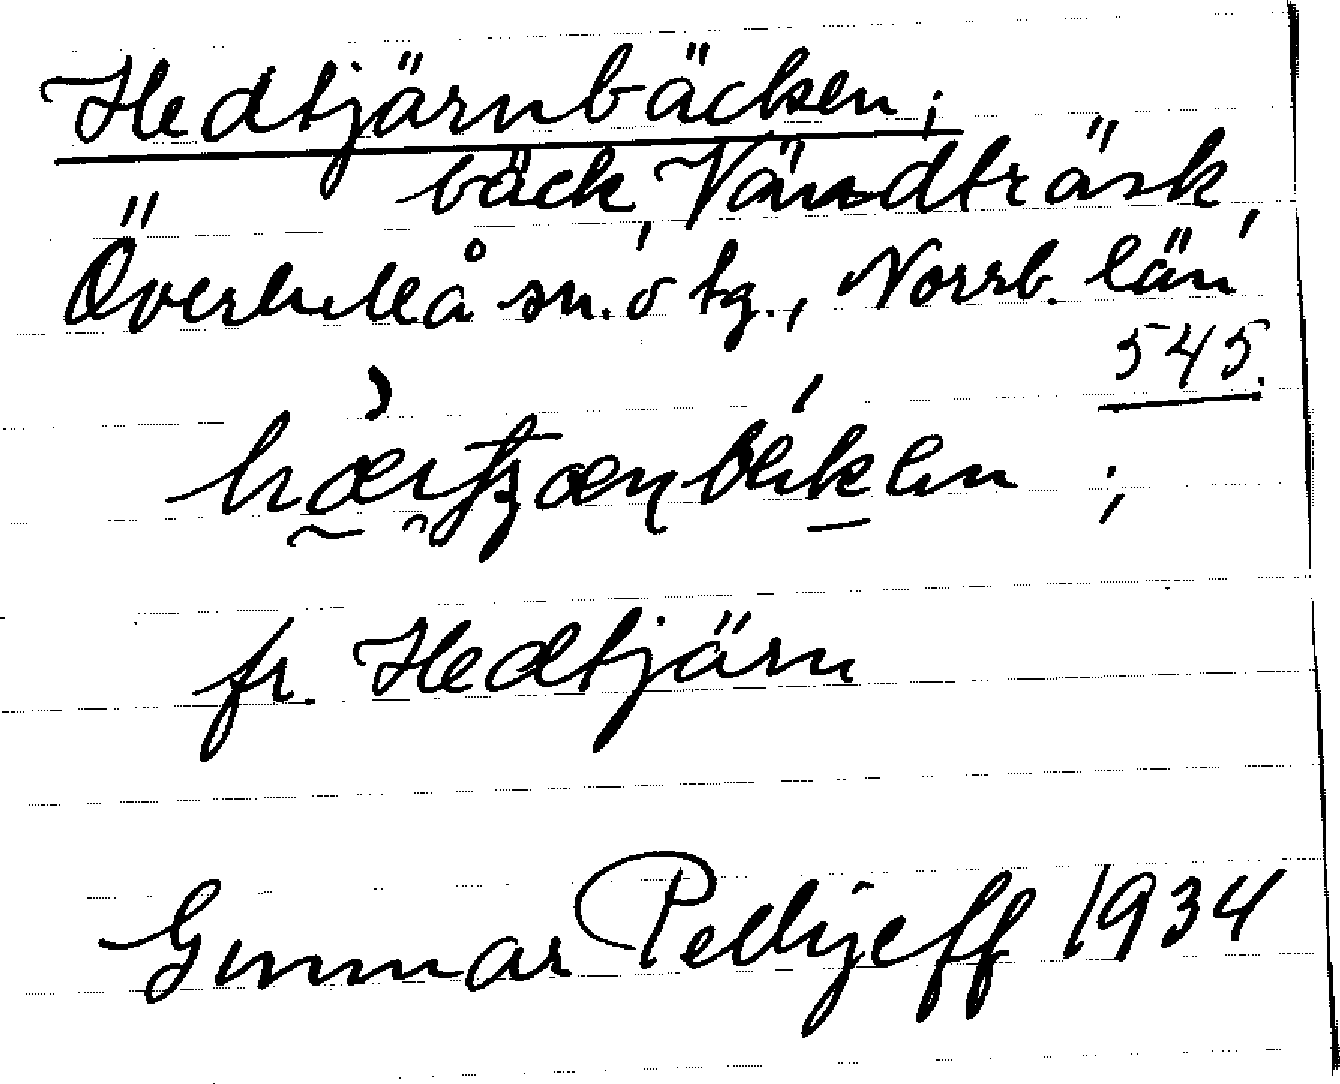 Hedtjärnbäcken;
bäck, Vändträsk,
Överluleå sn. o tg., Norrb. län
545.
fr. Hedtjärn
Gunnar Pellijeff 1934